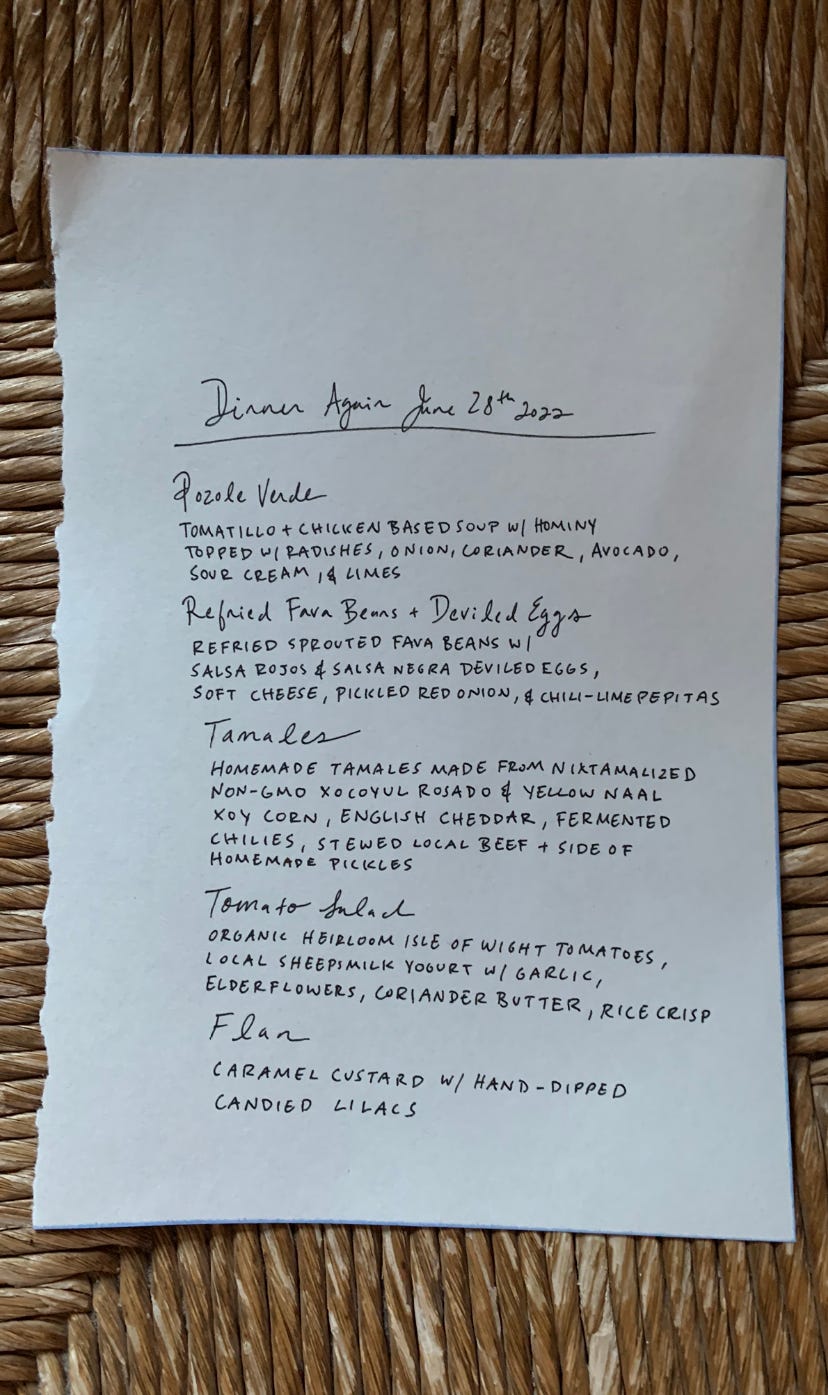 Dinner Again June 28th 2022
Pozole Verde
TOMATILLO + CHICKEN BASED SOUP W/ HOMINY
TOPPED W/ RADISHES, ONION, CORIANDER, AVOCADO,
SOUR CREAM, & LIMES
Refried Fava Beans + Deviled Eggs
REFRIED SPROUTED FAVA BEANS W/
SALSA ROJOS & SALSA NEGRA DEVILED EGGS,
SOFT CHEESE, PICKLED RED ONION, & CHILI-LIME PEPITAS
Tamales
HOMEMADE TAMALES MADE FROM NIXTAMALIZED
NON-GMO XOCOYUL ROSADO & YELLOW NAAL
XOY CORN, ENGLISH CHEDDAR, FERMENTED
CHILIES, STEWED LOCAL BEEF + SIDE OF
HOMEMADE PICKLES
Tomato Salad
ORGANIC HEIRLOOM ISLE OF WIGHT TOMATOES,
LOCAL SHEEPSMILK YOGURT W/ GARLIC,
ELDERFLOWERS, CORIANDER BUTTER, RICE CRISP
Flan
CARAMEL CUSTARD W/ HAND-DIPPED
CANDIED LILACS